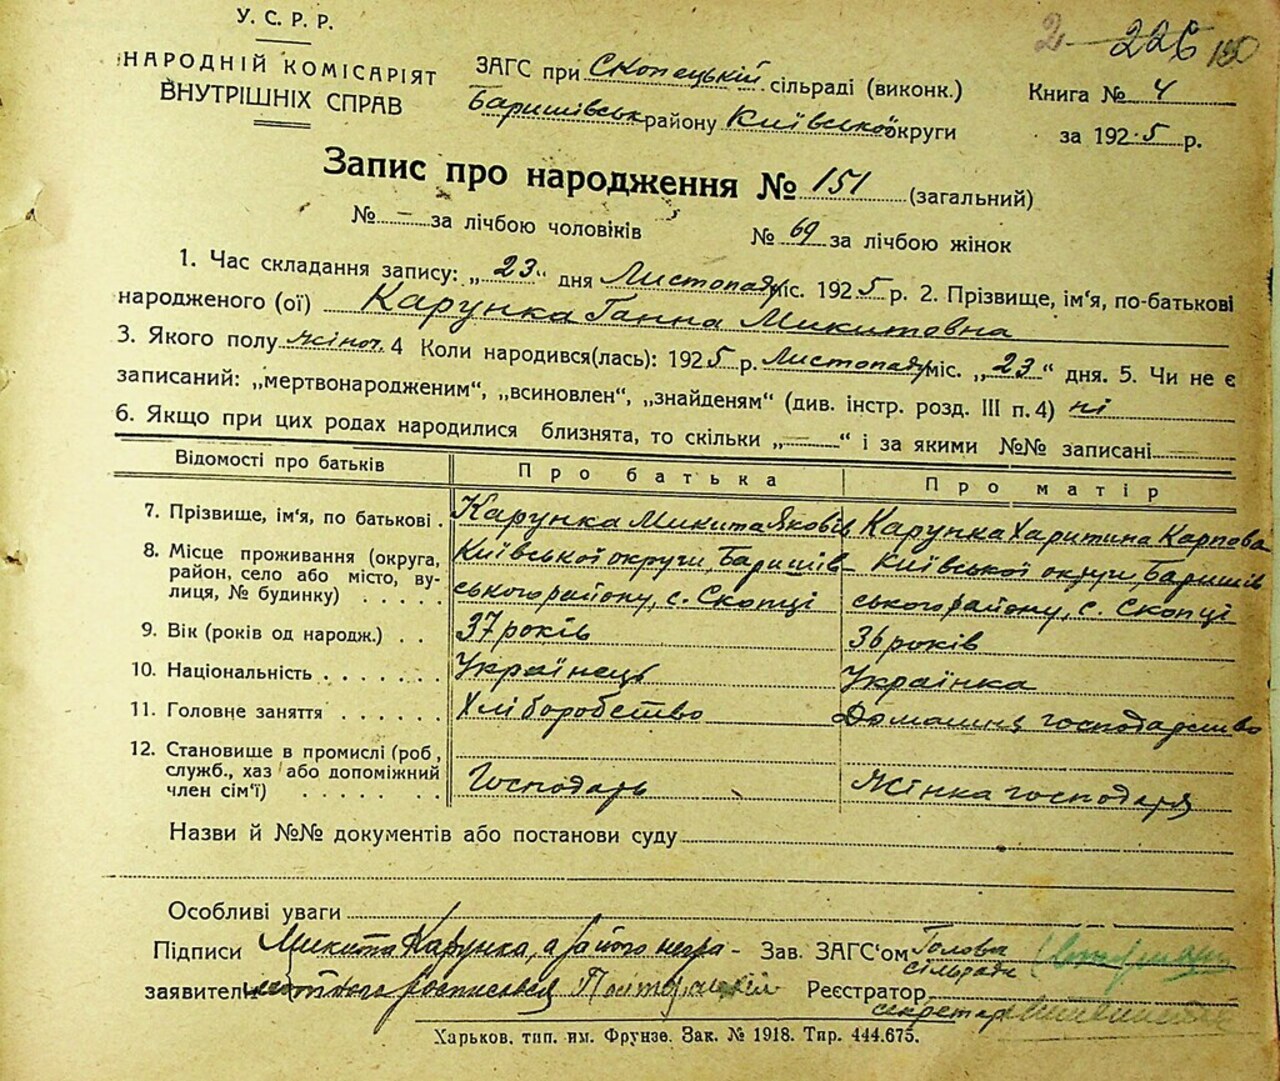 У. С. Р. Р.
НАРОДНІЙ КОМІСАРІЯТ
ВНУТРІШНІХ СПРАВ
2 226 150
ЗАГС при Скопецькій сільраді (виконк.)
Баришівськ району Київської округи
Книга № 4
за 1925 р.
Запис про народження № 151 (загальний)
№ — за лічбою чоловіків № 69 за лічбою жінок
1. Час складання запису: „23“ дня Листопаду міс. 1925 р. 2. Прізвище, ім‘я, по-батькові
народженого (ої) Карунка Ганна Микитовна
3. Якого полу жіноч. 4 Коли народився(лась): 1925 р. Листопаду міс. „23“ дня. 5. Чи не є
записаний: „мертвонародженим“, „всиновлен“, „знайденям“ (див. інстр. розд. III п. 4) ні
6. Якщо при цих родах народилися близнята, то скільки „—“ і за якими №№ записані —
Відомості про батьків Про батька Про матір
7. Прізвище, ім‘я, по батькові . Карунка Микита Яковів Карунка Харитина Карпова
8. Місце проживання (округа, район, село або місто, ву-лиця, № будинку) . . . . Київської округи, Баришів-ського району, с. Скопці Київської округи, Баришів ського району, с. Скопці
9. Вік (років од народж.) . . 37 років 36 років
10. Національність . . . . . . . Українець Українка
11. Головне заняття . . . . . . Хліборобство Домашнє господарство
12. Становище в промислі (роб, служб., хаз або допоміжний член сім‘ї) . . . . . . Господарь Жінка господаря
Назви й №№ документів або постанови суду
Особливі уваги
Підписи Микита Карунка, а за його негра- Зав. ЗАГС‘ом Голова
сільради
заявителя мотного росписався Реєстратор
секретар
Харьков, тип. им. Фрунзе. Зак. № 1918. Тир. 444.675.